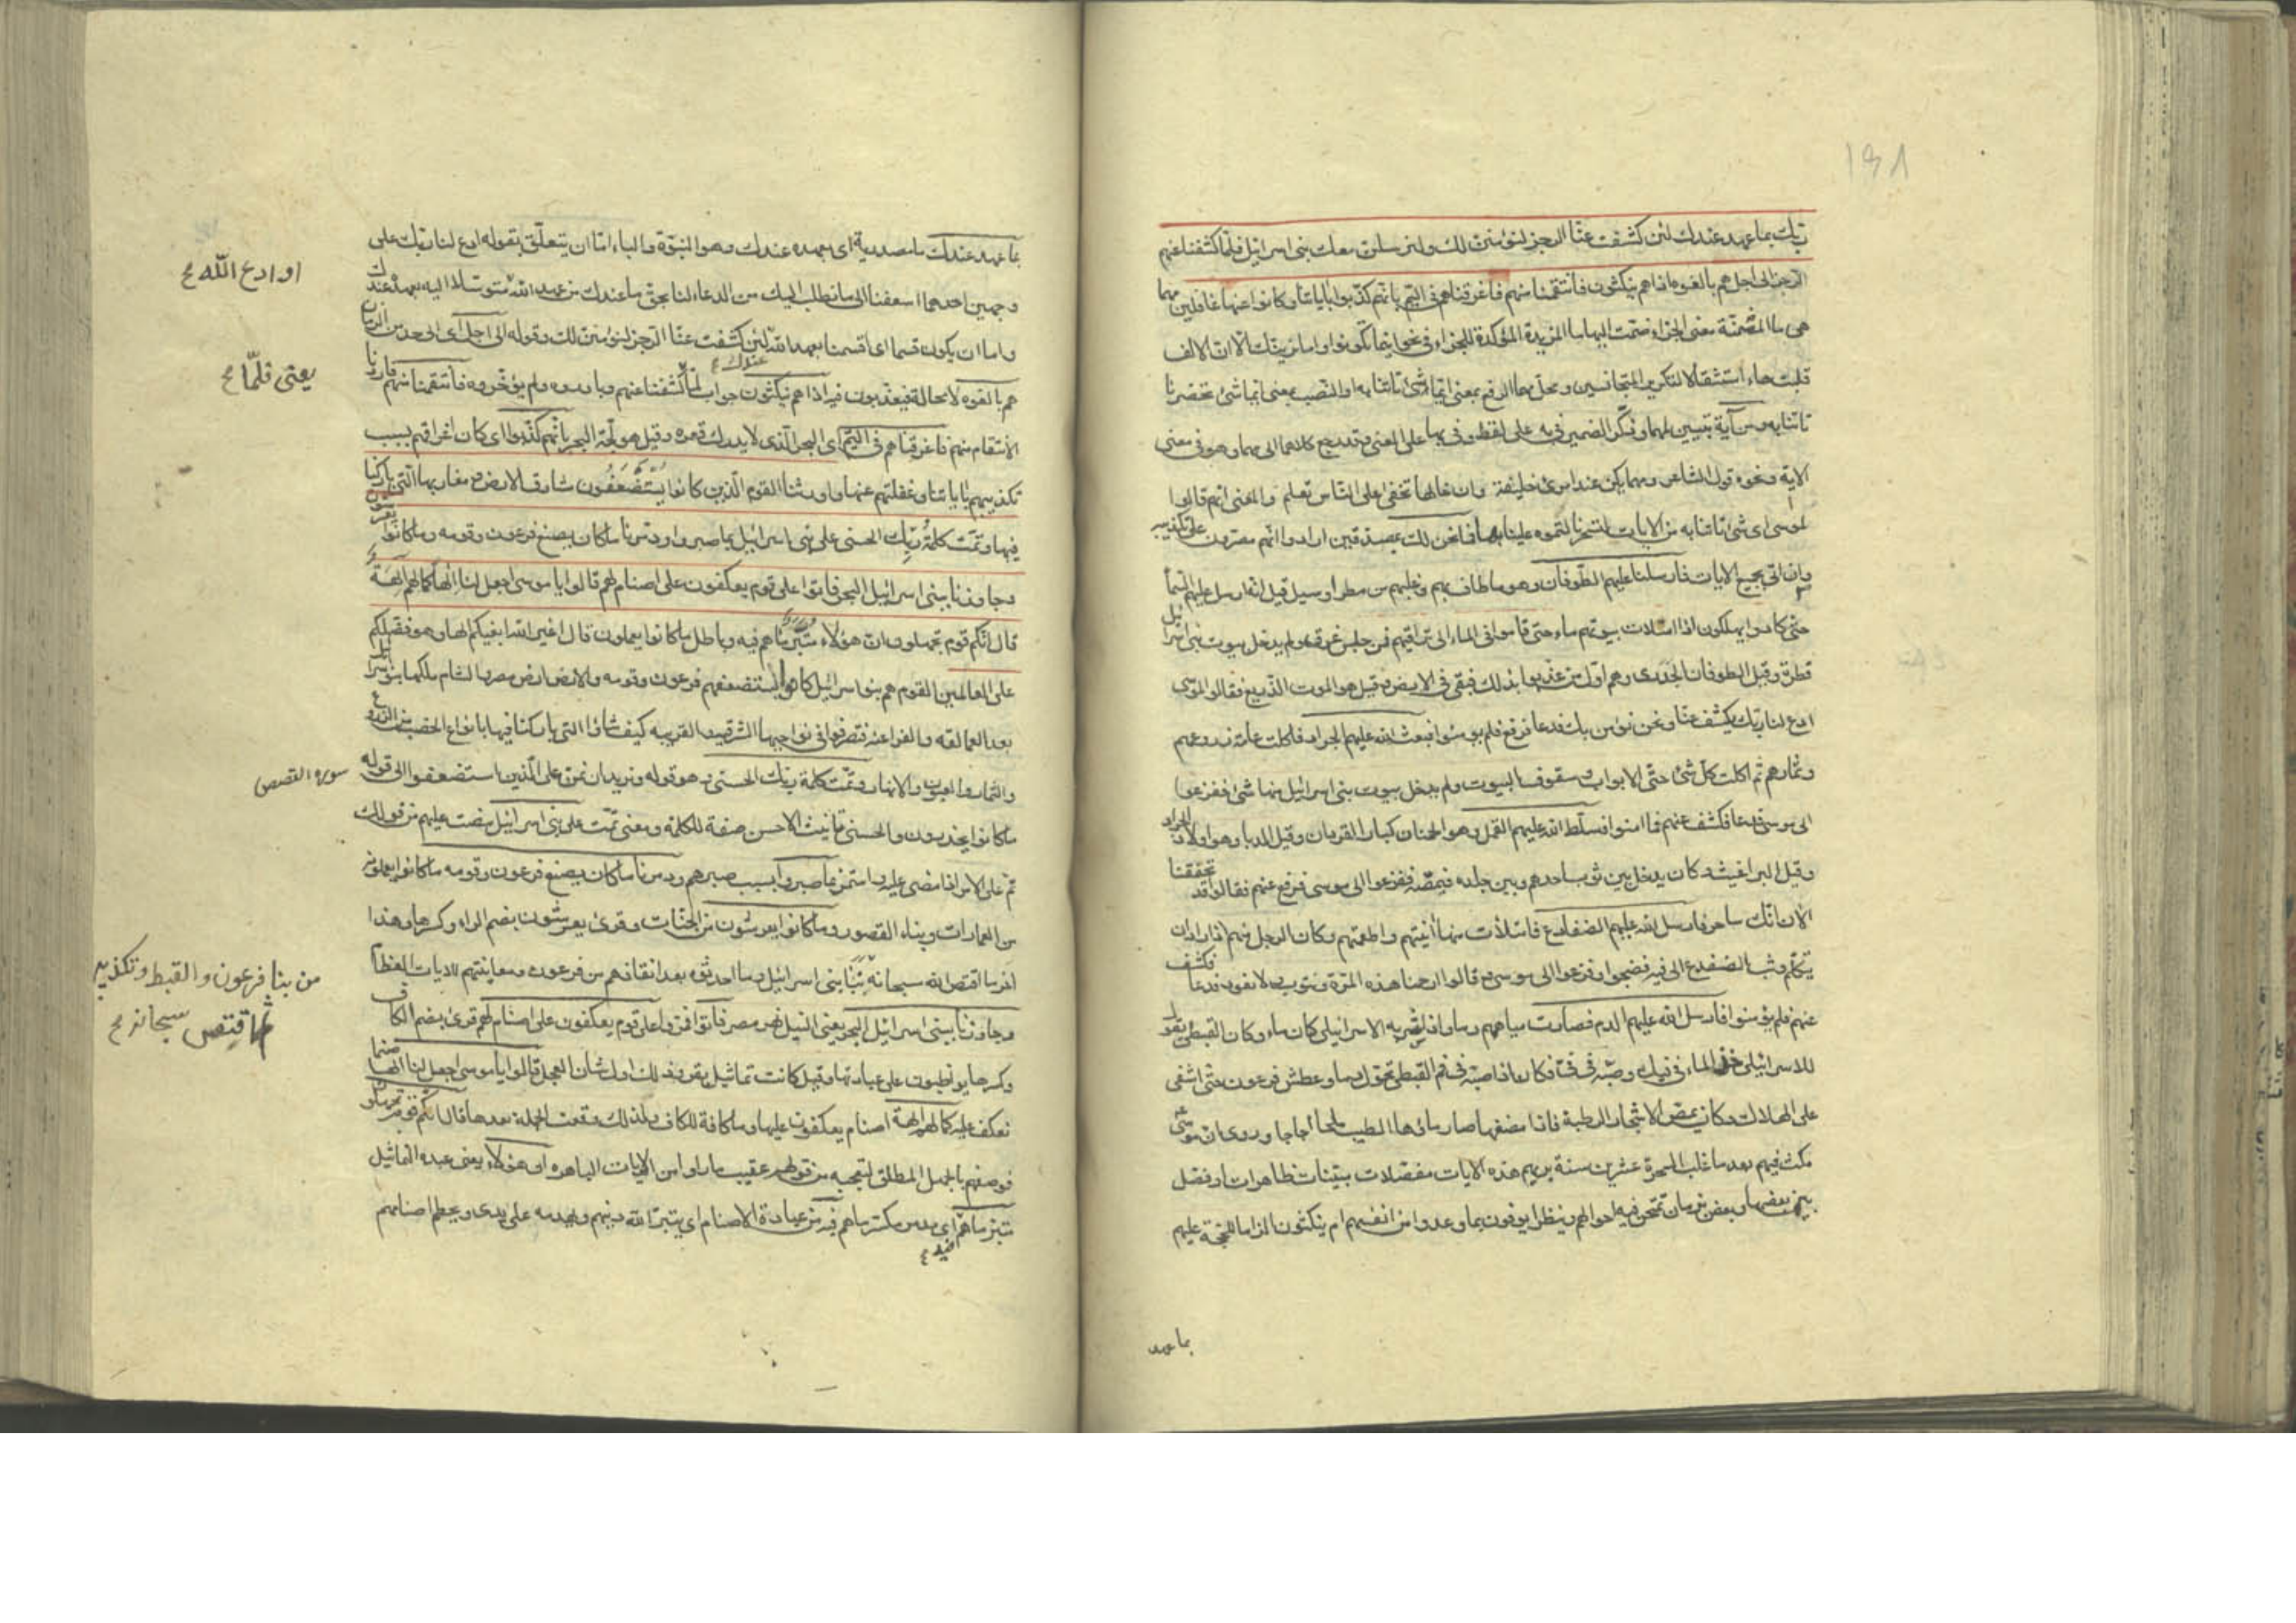 ربك بما عهد عندك لئن كشفت عنا الرجز لنؤمنن لك ولنرسلن معك بنى اسرائيل فلما كشفنا عنهم
الرجز الى اجل هم بالغوه اذا هم ينكثون فانتقمنا منهم فاغرقناهم فى اليم بانهم كذبوا باياتنا وكانوا عنها غافلين مهما
هى ما المضمنة معنى الجزاء ضمت اليها ما المزيدة المؤكدة للجزاء فى نحو اينما تكونوا واما نرينك الا ان الالف
قلبت هاء استثقالا لتكرير المتجانسين ومحل مهما الرفع بمعنى ايما شئ تاتنا به او النصب بمعنى ايما شئ تحضرنا
تاتنا به ومن آية تبيين لمهما وذكر الضمير فى به على اللفظ وفى بها على المعنى وقد رجع كلاهما الى مهما وهو فى معنى
الاية ونحوه قول الشاعر ومهما يكن عند امرئ خليقة وان خالها تخفى على الناس تعلم والمعنى انهم قالوا
لموسى اى شئ تاتنا به من الايات لتسحرنا لتموه علينا بها فما نحن لك بمصدقين ارادوا انهم مصرون على تكذيبه
وان اتى بجميع الايات فارسلنا عليهم الطوفان وهو ما طاف بهم وغلبهم من مطر او سيل قيل انه ارسل عليهم السماء
حتى كادوا يهلكون اذا امتلات بيوتهم ماء حتى قاموا فى الماء الى تراقيهم فمن جلس غرق ولم يدخل بيوت بنى اسرائيل
قطرة وقيل الطوفان الجدرى وهم اول من عذبوا بذلك فبقى فى الارض وقيل هو الموت الذريع فقالوا لموسى
ادع لنا ربك يكشف عنا ونحن نؤمن بك فدعا فرفع فلم يؤمنوا فبعث الله عليهم الجراد فاكلت عامة زروعهم
وثمارهم ثم اكلت كل شئ حتى الابواب وسقوف البيوت ولم يدخل بيوت بنى اسرائيل منها شئ ففزعوا
الى موسى فدعا فكشف عنهم فما امنوا فسلط الله عليهم القمل وهو الحمنان كبار القردان وقيل الدبا وهو اولاد الجراد
وقيل البراغيث وكان يدخل بين ثوب احدهم وبين جلده فيمصه ففزعوا الى موسى فرفع عنهم فقالوا قد تحققنا
الان انك ساحر فارسل الله عليهم الضفادع فامتلات منها آنيتهم واطعمتهم وكان الرجل منهم اذا اراد ان
يتكلم وثب الضفدع الى فيه فضجوا وفزعوا الى موسى وقالوا ارحمنا هذه المرة ونتوب ولا نعود فدعا فكشف
عنهم فلم يؤمنوا فارسل الله عليهم الدم فصارت مياههم دما واذا شربه الاسرائيلى كان ماء وكان القبطى يقول
للاسرائيلى خذ الماء فى فيك وصبه فى فىّ فكان اذا صبه فى فم القبطى تحول دما وعطش فرعون حتى اشفى
على الهلاك وكان يمص الاشجار الرطبة فاذا مضغها صار ماؤها الطيب ملحا اجاجا وروى ان موسى
مكث فيهم بعد ما غلب السحرة عشرين سنة يريهم هذه الايات مفصلات مبينات ظاهرات او فصل
بين بعضها وبعض بزمان تمتحن فيه احوالهم وينظر ايوفون بما وعدوا من انفسهم ام ينكثون الزاما للحجة عليهم
بما عهد
بما عهد عندك ما مصدرية اى بعهده عندك وهو النبوة والباء اما ان يتعلق بقوله ادع لنا ربك على
وجهين احدهما اسعفنا الى ما نطلب اليك من الدعاء لنا بحق ما عندك من عهد الله متوسلا اليه بعهده عندك
واما ان يكون قسما اى اقسمنا بعهد الله لئن كشفت عنا الرجز لنؤمنن لك وقوله الى اجل اى الى حد من الزمان
هم بالغوه لا محالة فيعذبون فيه اذا هم ينكثون جواب لما كشفنا عنهم وبادروه ولم يؤخروه فانتقمنا منهم فاردنا
الانتقام منهم فاغرقناهم فى اليم اى البحر الذى لا يدرك قعره وقيل هو لجة البحر بانهم كذبوا اى كان اغراقهم بسبب
تكذيبهم باياتنا وغفلتهم عنها واورثنا القوم الذين كانوا يستضعفون مشارق الارض ومغاربها التى باركنا
فيها وتمت كلمة ربك الحسنى على بنى اسرائيل بما صبروا ودمرنا ما كان يصنع فرعون وقومه وما كانوا يعرشون
وجاوزنا ببنى اسرائيل البحر فاتوا على قوم يعكفون على اصنام لهم قالوا يا موسى اجعل لنا الها كما لهم آلهة
قال انكم قوم تجهلون ان هؤلاء متبر ما هم فيه وباطل ما كانوا يعملون قال اغير الله ابغيكم الها وهو فضلكم
على العالمين القوم هم بنو اسرائيل كانوا يستضعفهم فرعون وقومه والارض ارض مصر والشام ملكها بنو اسرائيل
بعد العمالقه والفراعنه فتصرفوا فى نواحيها الشرقيه القريبه كيف شاؤا التى باركنا فيها بانواع الخصب من الزروع
والثمار والعيون والانهار وتمت كلمة ربك الحسنى وهو قوله ونريد ان نمن على الذين استضعفوا الى قوله
ما كانوا يحذرون والحسنى تانيث الاحسن صفة للكلمة ومعنى تمت على بنى اسرائيل مضت عليهم من قولك
تم على الامر اذا مضى عليه واستمر بما صبروا بسبب صبرهم ودمرنا ما كان يصنع فرعون وقومه ما كانوا يعملون
من العمارات وبناء القصور وما كانوا يعرشون من الجنات وقرئ يعرشون بضم الراء وكسرها وهذا
اخر ما اقتص الله سبحانه من نبا بنى اسرائيل وما احدثوه بعد انقاذهم من فرعون ومعاينتهم الايات العظام
وجاوزنا ببنى اسرائيل البحر يعنى النيل نهر مصر فاتوا فمروا على قوم يعكفون على اصنام لهم قرئ بضم الكاف
وكسرها يواظبون على عبادتها وقيل كانت تماثيل بقر وذلك اول شان العجل قالوا يا موسى اجعل لنا الها صنما
نعكف عليه كما لهم الهة اصنام يعكفون عليها وما كافة للكاف ولذلك وقعت الجملة بعدها قال انكم قوم تجهلون
فوصفهم بالجهل المطلق لتعجبه من قولهم عقيب ما راوا من الايات الباهره ان هؤلاء يعنى عبدة التماثيل
متبر ما هم اى مدمر مكسر ما هم فيه من عبادة الاصنام اى يتبر الله دينهم ويهدمه على يدى ويحطم اصنامهم
او ادع الله
يعنى فلما
سورة القصص
من بنا فرعون والقبط وتكذيبهم
ثم اقتص سبحانه